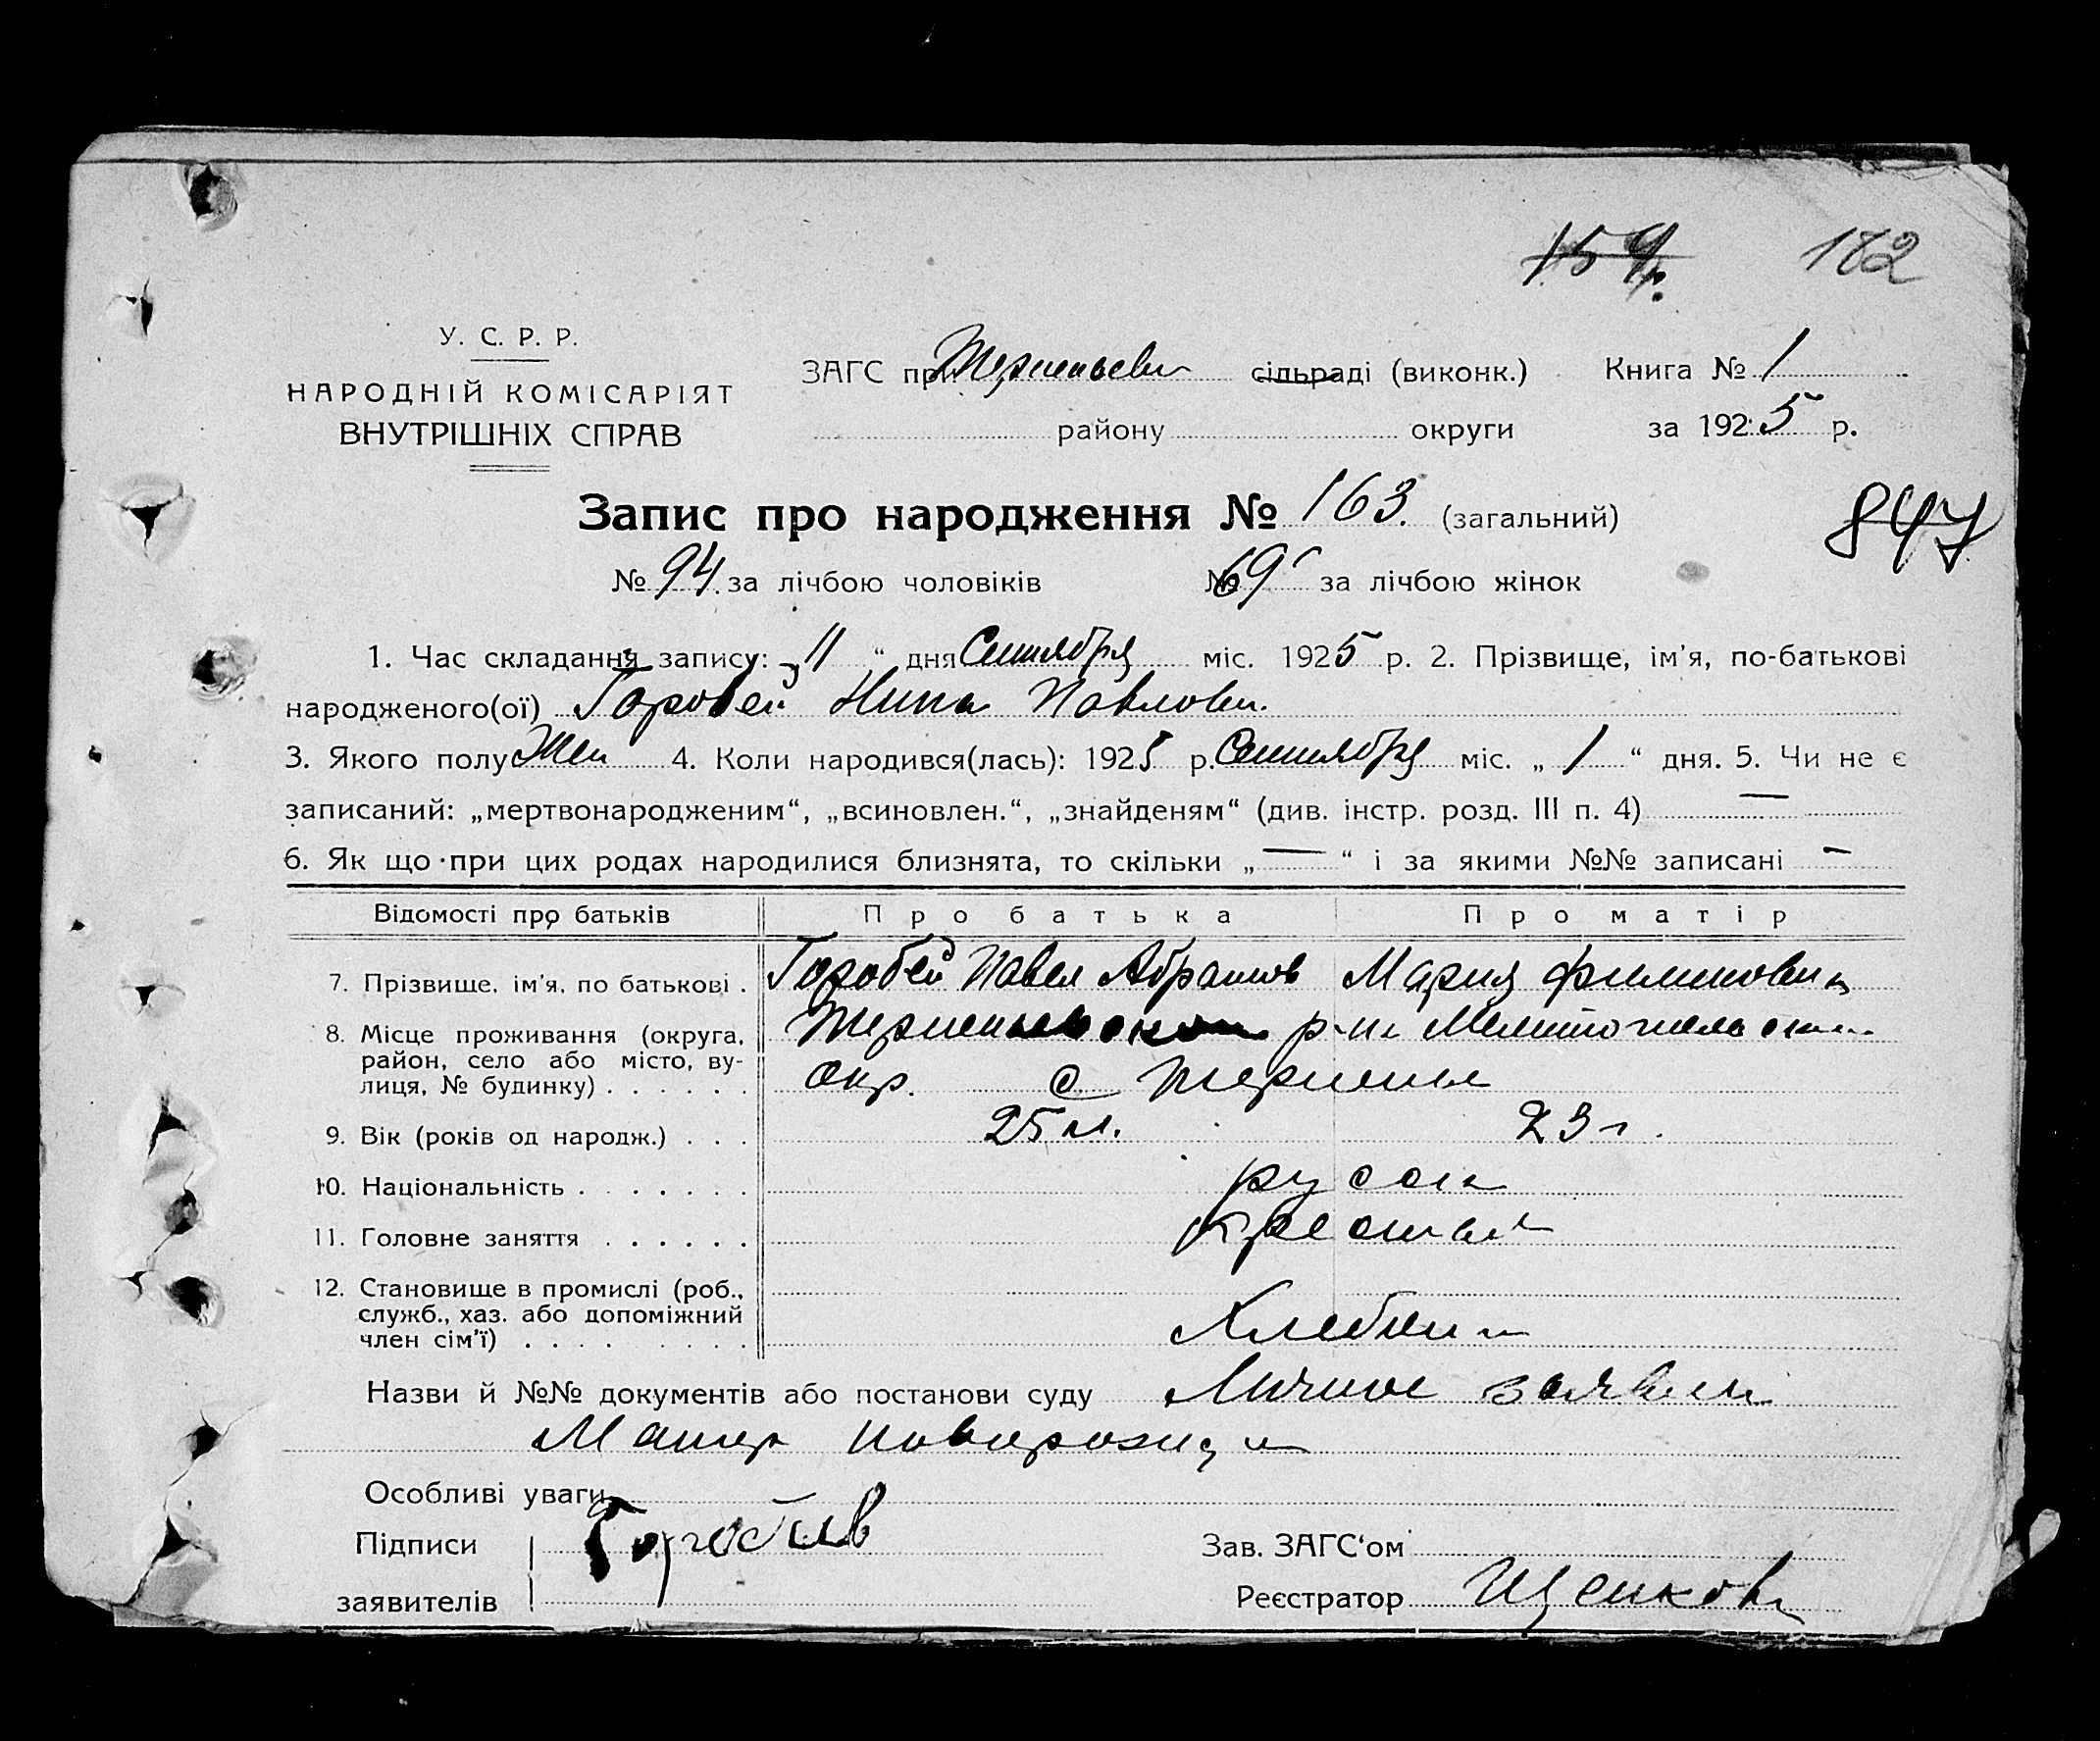 159. 182
У. С. Р. Р.
НАРОДНІЙ КОМІСАРІЯТ
ВНУТРІШНІХ СПРАВ
ЗАГС при сільраді (виконк.) Книга № 1
району округи за 1925 р.
Запис про народження № 163. (загальний)
847
№ 94 за лічбою чоловіків № 69 за лічбою жінок
1. Час складання запису: „11“ дня Сентября міс. 1925 р. 2. Прізвище, ім'я, по-батькові
народженого(ої) Горобей Нина Павлови.
3. Якого полу Жен 4. Коли народився(лась): 1925 р. Сентября міс. „1“ дня. 5. Чи не є
записаний: „мертвонародженим“, „всиновлен.“, „знайденям“ (див. інстр. розд. III п. 4) —
6. Як що при цих родах народилися близнята, то скільки „—“ і за якими №№ записані —
Відомості про батьків Про батька Про матір
7. Прізвище, ім'я, по батькові . Горобей Павел Абрамов Мария Филиповна
8. Місце проживання (округа,
район, село або місто, ву-
лиця, № будинку) . . . . . .
р-на
Окр. с
9. Вік (років од народж.) . . . 25 л. 23 г.
10. Національність . . . . . . .
11. Головне заняття . . . . . .
12. Становище в промислі (роб.,
служб., хаз. або допоміжний
член сім'ї) . . . . . . . .
Назви й №№ документів або постанови суду Личное заявлен
Матер
Особливі уваги
Підписи
заявителів
Зав. ЗАГС'ом
Реєстратор